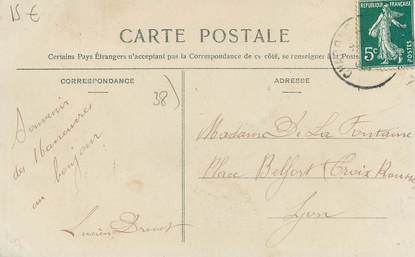 15 €
CARTE POSTALE
Certains Pays Étrangers n'acceptant pas la Correspondance de ce côté, se renseigner à la Poste
CORRESPONDANCE
ADRESSE
RÉPUBLIQUE FRANÇAISE
5c
POSTES
38)
Souvenir
des Manœuvres
un bonjour
Lucien
Madame De La Fontaine
Place Belfort Croix Rousse
Lyon